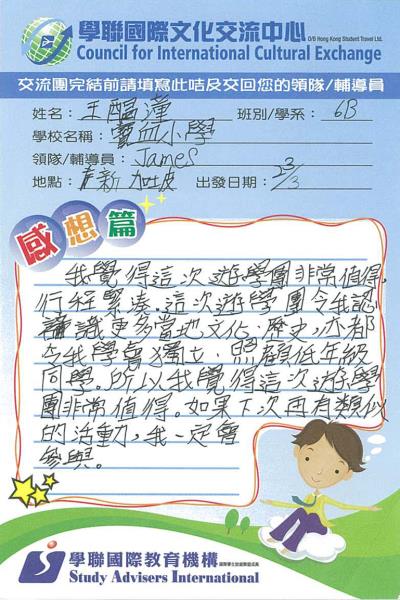 學聯國際文化交流中心
O/B Hong Kong Student Travel Ltd.
Council for International Cultural Exchange
交流團完結前請填寫此咭及交回您的領隊/輔導員
姓名： 王 班別/學系： 6B
學校名稱： 寶血小學
領隊/輔導員： James
地點： 新加坡 出發日期： 23/3
感想篇
我覺得這次遊學團非常值得,
行程緊湊,這次遊學團令我認
識更多當地文化、歷史,亦都
令我學會獨立、照顧低年級
同學。所以我覺得這次遊學
團非常值得。如果下次再有類似
的活動,我一定會
參與。
學聯國際教育機構
Study Advisers International